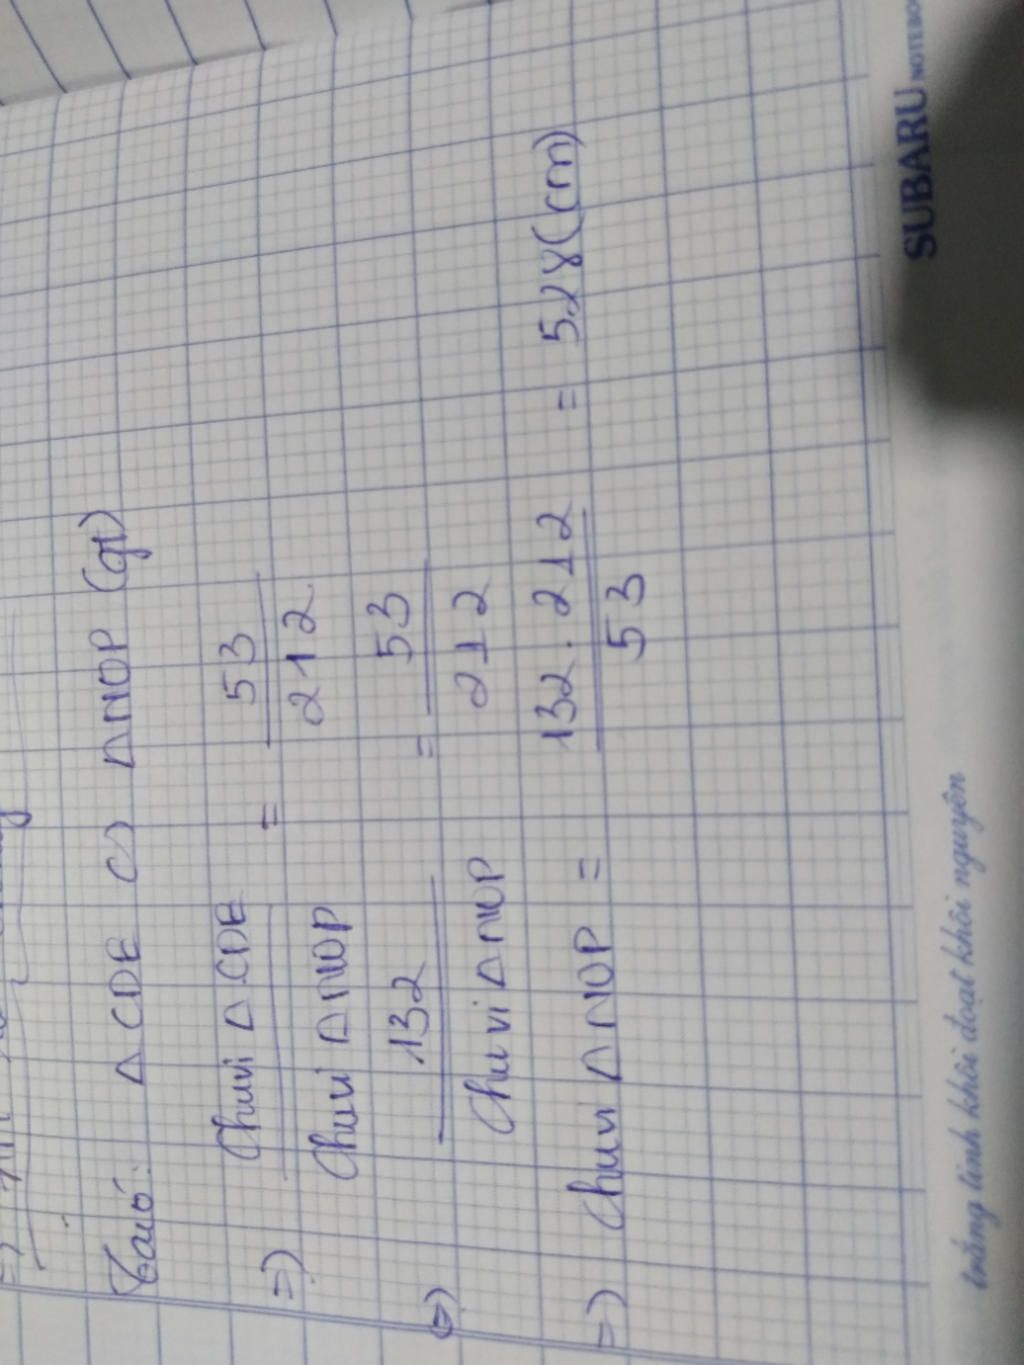 Ta có: △CDE ∽ △NOP (gt)
=> Chu vi △CDE / Chu vi △NOP = 53 / 212
<=> 132 / Chu vi △NOP = 53 / 212
=> Chu vi △NOP = 132 . 212 / 53 = 528 (cm)
trăng tinh khôi đoạt khôi nguyên
SUBARU NOTEBO